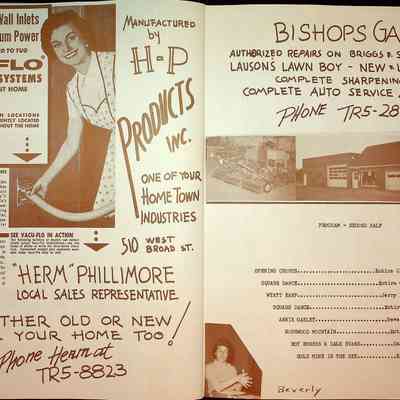 Wall Inlets
um Power
FLO
SYSTEMS
T HOME
N LOCATIONS
OUT THE HOME
SEE VACU-FLO IN ACTION
MANUFACTURED
by
H-P
PRODUCTS
INC.
ONE OF YOUR
HOME TOWN
INDUSTRIES
510 WEST
BROAD ST.
"HERM" PHILLIMORE
LOCAL SALES REPRESENTATIVE
THER OLD OR NEW
YOUR HOME TOO!
Phone Herm at
TR5-8823
BISHOPS GA
AUTHORIZED REPAIRS ON BRIGGS & S
LAUSONS LAWN BOY - NEW &
COMPLETE SHARPENING
COMPLETE AUTO SERVICE
PHONE TR5-28
PROGRAM - SECOND HALF
OPENING CHORUS
SQUARE DANCE
WYATT EARP
SQUARE DANCE
ANNIE OAKLEY
ROCKWOOD MOUNTAIN
ROY ROGERS & DALE EVANS
GOLD MINE IN THE SKY
Beverly